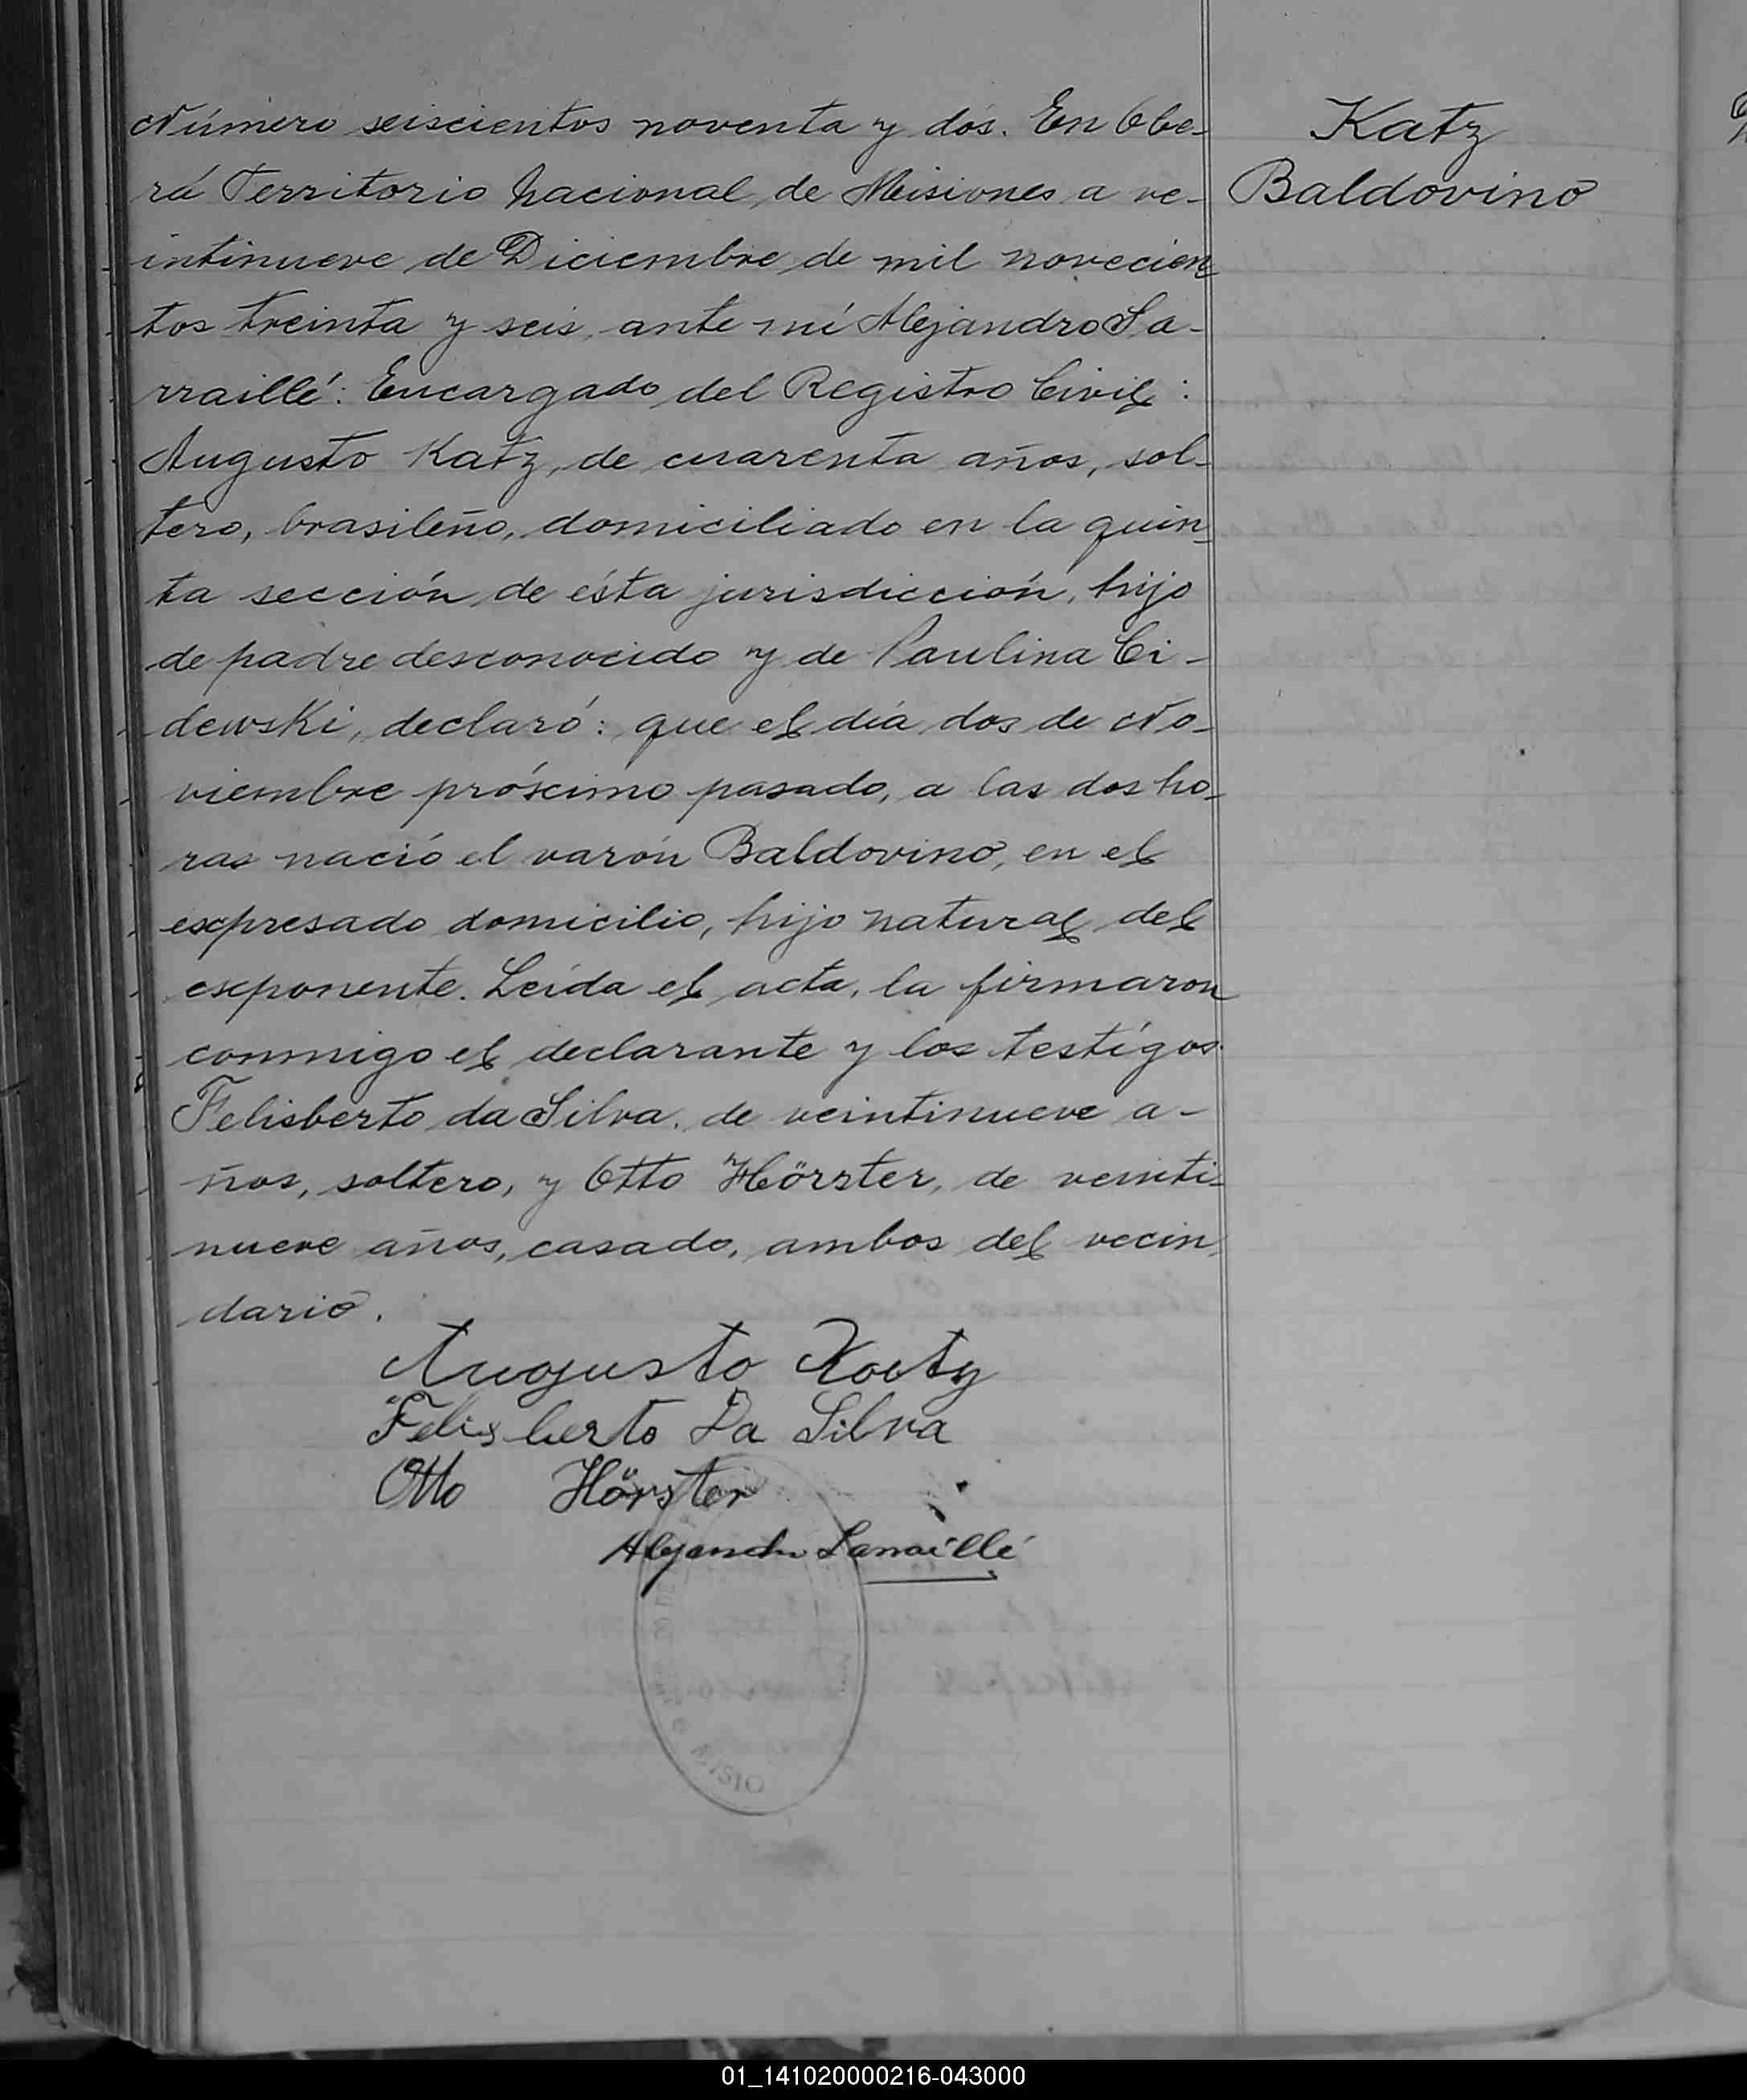 Número seiscientos noventa y dos. En Obe-
rá Territorio nacional de Misiones a ve-
intinueve de Diciembre de mil novecien
tos treinta y seis, ante mí Alejandro Sa-
rraillé: Encargado del Registro Civil:
Augusto Katz, de cuarenta años, sol-
tero, brasileño, domiciliado en la quin
ta sección de ésta jurisdicción, hijo
de padre desconocido y de Paulina Ci-
dewski, declaró: que el día dos de No-
viembre próximo pasado, a las dos ho-
ras nació el varón Baldovino, en el
expresado domicilio, hijo natural del
exponente. Leída el acta, la firmaron
conmigo el declarante y los testigos
Felisberto da Silva, de veintinueve a-
ños, soltero, y Otto Hörster, de veinti-
nueve años, casado, ambos del vecin
dario.
Augusto Katz
Felisberto Da Silva
Otto Hörster
Alejandro Sarraillé
Katz
Baldovino
01_141020000216-043000